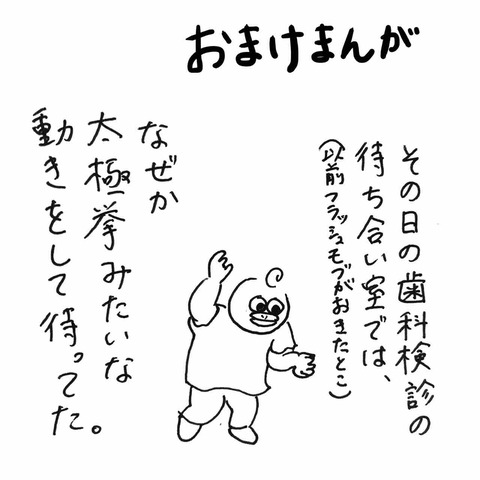 おまけまんが
その日の歯科検診の
待ち合い室では、
(以前フラッシュモブがおきたとこ)
なぜか
太極拳みたいな
動きをして待ってた。